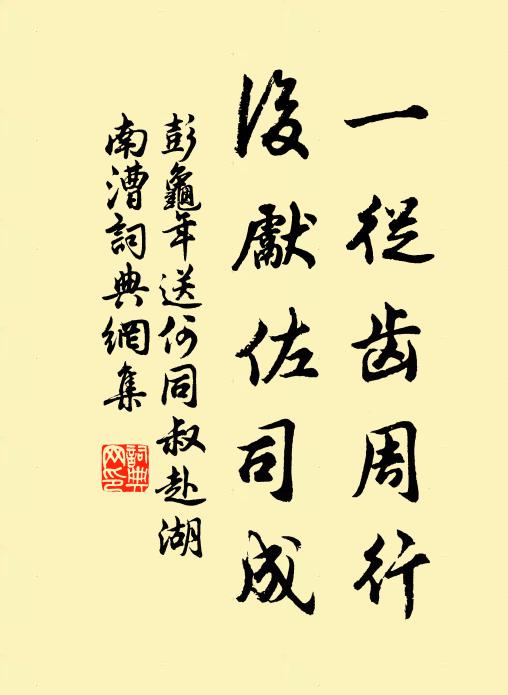 一從齿周行
復獻佐司成
彭龜年送何同叔赴湖
南漕詞典網集
詞典网印